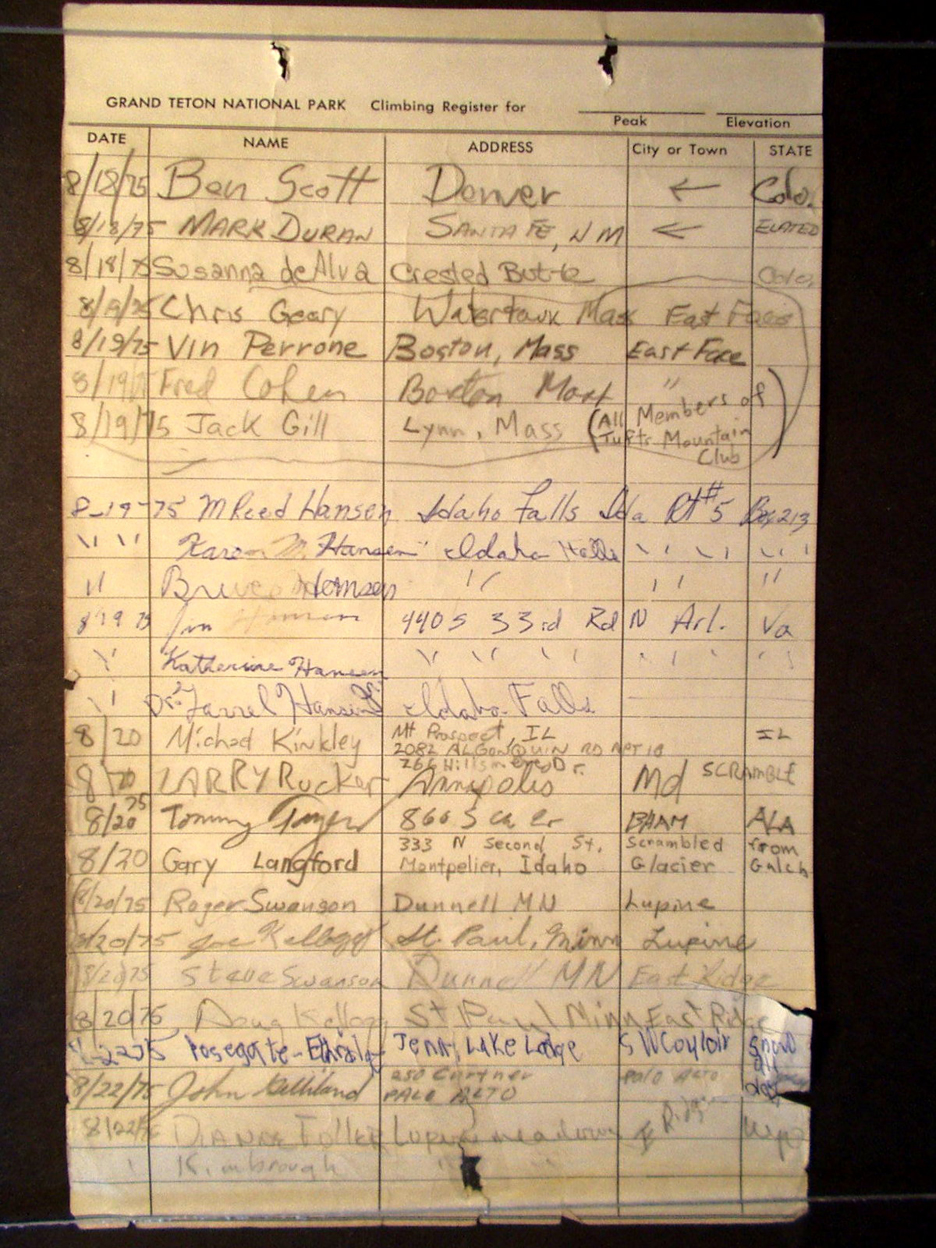 GRAND TETON NATIONAL PARK Climbing Register for
Peak Elevation
DATE NAME ADDRESS City or Town STATE
8/18/75 Ben Scott Denver ← Colo.
8/18/75 MARK DURAN SANTA FE, NM ← ELATED
8/18/75 Susanna de Alva Crested Butte Colo.
8/19/75 Chris Geary Watertown Mass East Face
8/19/75 Vin Perrone Boston, Mass East Face
8/19/75 Fred Cohen Boston Mass "
8/19/75 Jack Gill Lynn, Mass (All Members of
Tufts Mountain
Club)
8-19-75 M Reed Hansen Idaho Falls Ida Rt #5 Box 213
" " Karen M. Hansen Idaho Falls " " " "
" Bruce Hansen " " "
8 19 75 4405 33rd Rd N Arl. Va
" Katherine Hansen " " " " " " " "
" Dr. Farrel Hansen Idaho Falls
8/20 Michael Kinkley Mt Prospect, IL IL
2082 ALGONQUIN RD APT 10
8/20 LARRY Rucker Dr.
Annapolis Md SCRAMBLE
8/20 75 Tommy 860 BHAM ALA
8/20 Gary Langford 333 N Second St, Scrambled from
Montpelier, Idaho Glacier Gulch
8/20/75 Roger Swanson Dunnell MN Lupine
8/20/75 Joe Kellogg St. Paul, Minn Lupine
8/20/75 Steve Swanson Dunnell MN East Ridge
8/20/75 Doug Kellogg St Paul Minn East Ridge
Jenny Lake Lodge SW Couloir Snowd
8/22/75 John 250 Curtner PALO ALTO
PALO ALTO
8/22/75 DIANNE Lupine meadows E Ridge Wyo
" Kimbrough " "